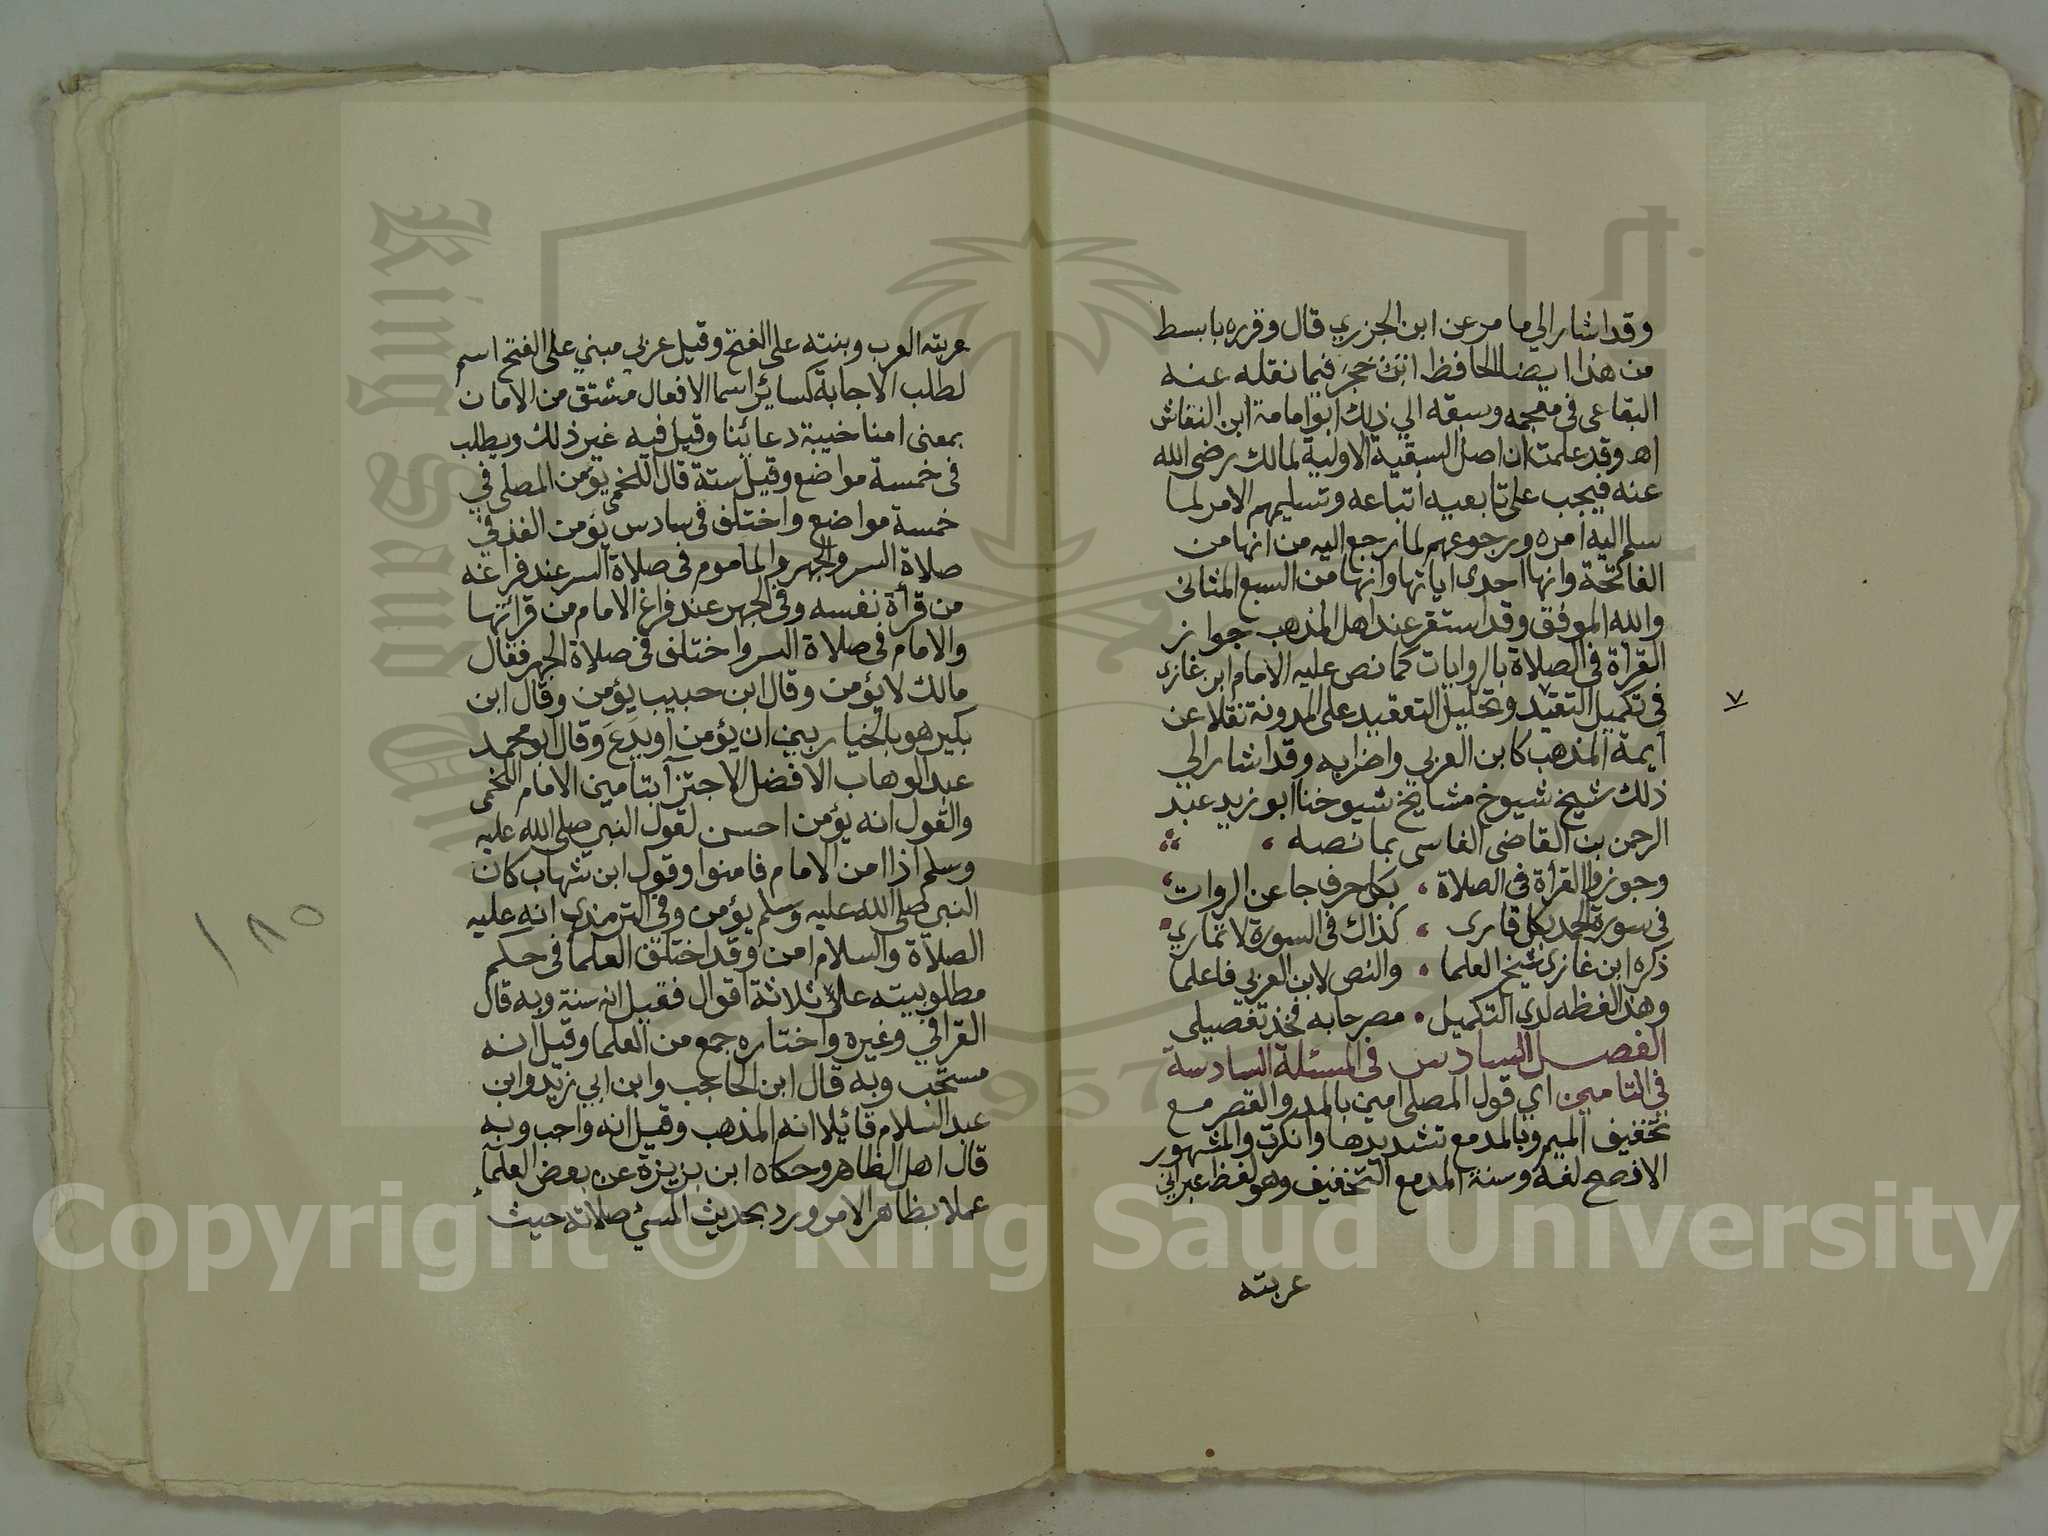 وقد اشار الي ما مر عن ابن الجزري قال وقرره بابسط
من هذا ايضا الحافظ ابن حجر فيما نقله عنه
البقاعى فى معجمه وسبقه الي ذلك ابو امامة ابن النقاش
اهـ وقد علمت ان اصل السبقية الاولية لمالك رضى الله
عنه فيجب على تابعيه اتباعه وتسليمهم الامر لما
سلم اليه امره ورجوعهم لما رجع اليه من انها من
الفاتحة وانها احدى اياتها وانها من السبع المثانى
والله الموفق وقد استقر عند اهل المذهب جواز
القرأة فى الصلاة بالروايات كما نص عليه الامام ابن غازى
في تكميل التقيد وتحليل التعقيد على المدونة نقلا عن
ايمة المذهب كابن العربي واضرابه وقد اشار الي
ذلك شيخ شيوخ مشايخ شيوخنا ابو زيد عبد
الرحمن بن القاضى الفاسى بما نصه
وجوزوا القرأة فى الصلاة بكل حرف جا عن الروات
فى سورة الحمد بكل قارى كذاك فى السورة لا تماري
ذكره ابن غازى شيخ العلما والنص لابن العربي فاعلما
وهذا لفظه لدي التكميل مصرحا به فخذ تفصيلى
الفصل السادس فى المسئلة السادسة
فى التامين اي قول المصلى امين بالمد والقصر مع
تخفيف الميم وبالمد مع تشديدها وانكرت والمشهور
الافصح لغة وسنة المد مع التخفيف وهو لفظ عبراني
عربته
٧
عربته العرب وبنته على الفتح وقيل عربي مبني على الفتح اسم
لطلب الاجابة كسائر اسما الافعال مشتق من الامان
بمعنى امنا خيبة دعائنا وقيل فيه غير ذلك ويطلب
فى خمسة مواضع وقيل ستة قال اللخمى يؤمن المصلى في
خمسة مواضع واختلف فى سادس يؤمن الفذ في
صلاة السر والجهر والماموم فى صلاة السر عند فراغه
من قرأة نفسه وفى الجهر عند فراغ الامام من قرائتها
والامام فى صلاة السر واختلف فى صلاة الجهر فقال
مالك لا يؤمن وقال ابن حبيب يؤمن وقال ابن
بكير هو بالخيار بين ان يؤمن او يدع وقال ابو محمد
عبد الوهاب الافضل الاجتزأ بتامين الامام اللخمى
والقول انه يؤمن احسن لقول النبي صلى الله عليه
وسلم اذا امن الامام فامنوا وقول ابن شهاب كان
النبي صلى الله عليه وسلم يؤمن وفى الترمذى انه عليه
الصلاة والسلام امن وقد اختلف العلما فى حكم
مطلوبيته على ثلاثة اقوال فقيل انه سنة وبه قال
القرافي وغيره واختاره جمع من العلما وقيل انه
مستحب وبه قال ابن الحاجب وابن ابي زيد وابن
عبد السلام قائلا انه المذهب وقيل انه واجب وبه
قال اهل الظاهر وحكاه ابن بزيزة عن بعض العلمآ
عملا بظاهر الامر ورد بحديث المسئ صلاته حيث
١٨٥
King Saud University
1957
Copyright © King Saud University